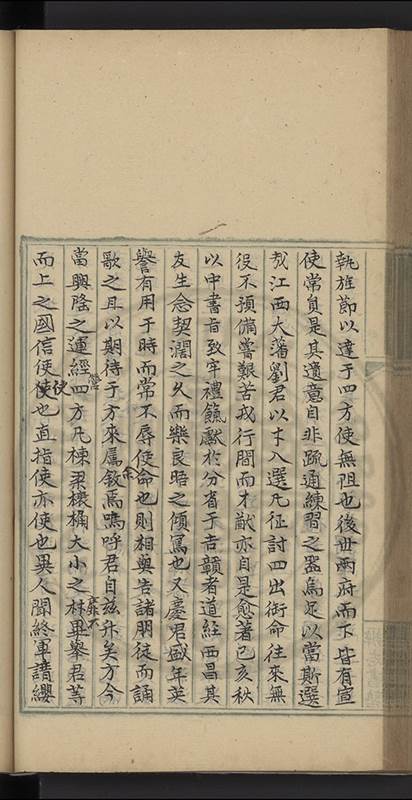 執旌節以達于四方使無阻也後世兩府而下皆有宣
使常負是其遺意自非疏通練習之器烏足以當斯選
哉江西大藩劉君以才入選凡征討四出銜命往來無
役不預備嘗艱苦戎行間而才猷亦自是愈著已亥秋
以中書旨致牢禮餼獻於分省于吉贛者道經西昌其
友生念契濶之久而樂良晤之傾寫也又慶君盛年英
譽有用于時而常不辱使命也則相與告諸朋徒而誦
歌之且以期待于方來屬敘焉嗚呼君自兹升矣方今
當興隆之運經營四方凡棟梁榱桷大小之材靡不畢舉君等
而上之國信使使也直指使亦使也異人聞終軍請纓